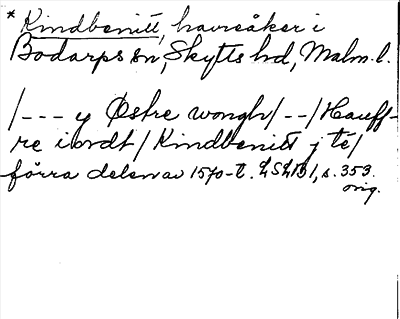 * Kindbenitt, havreåker i
Bodarps sn, Skytts hd, Malm. l.
/--- y Østre wongh/--/Hauff-
re iordt/Kindbenitt j te/
förra delen av 1570-t. LSLB1, s. 353.
orig.